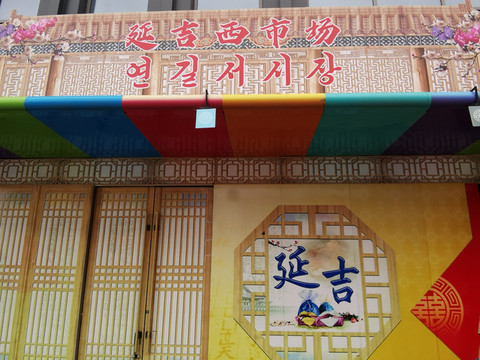 延吉西市场
연길서시장
延吉